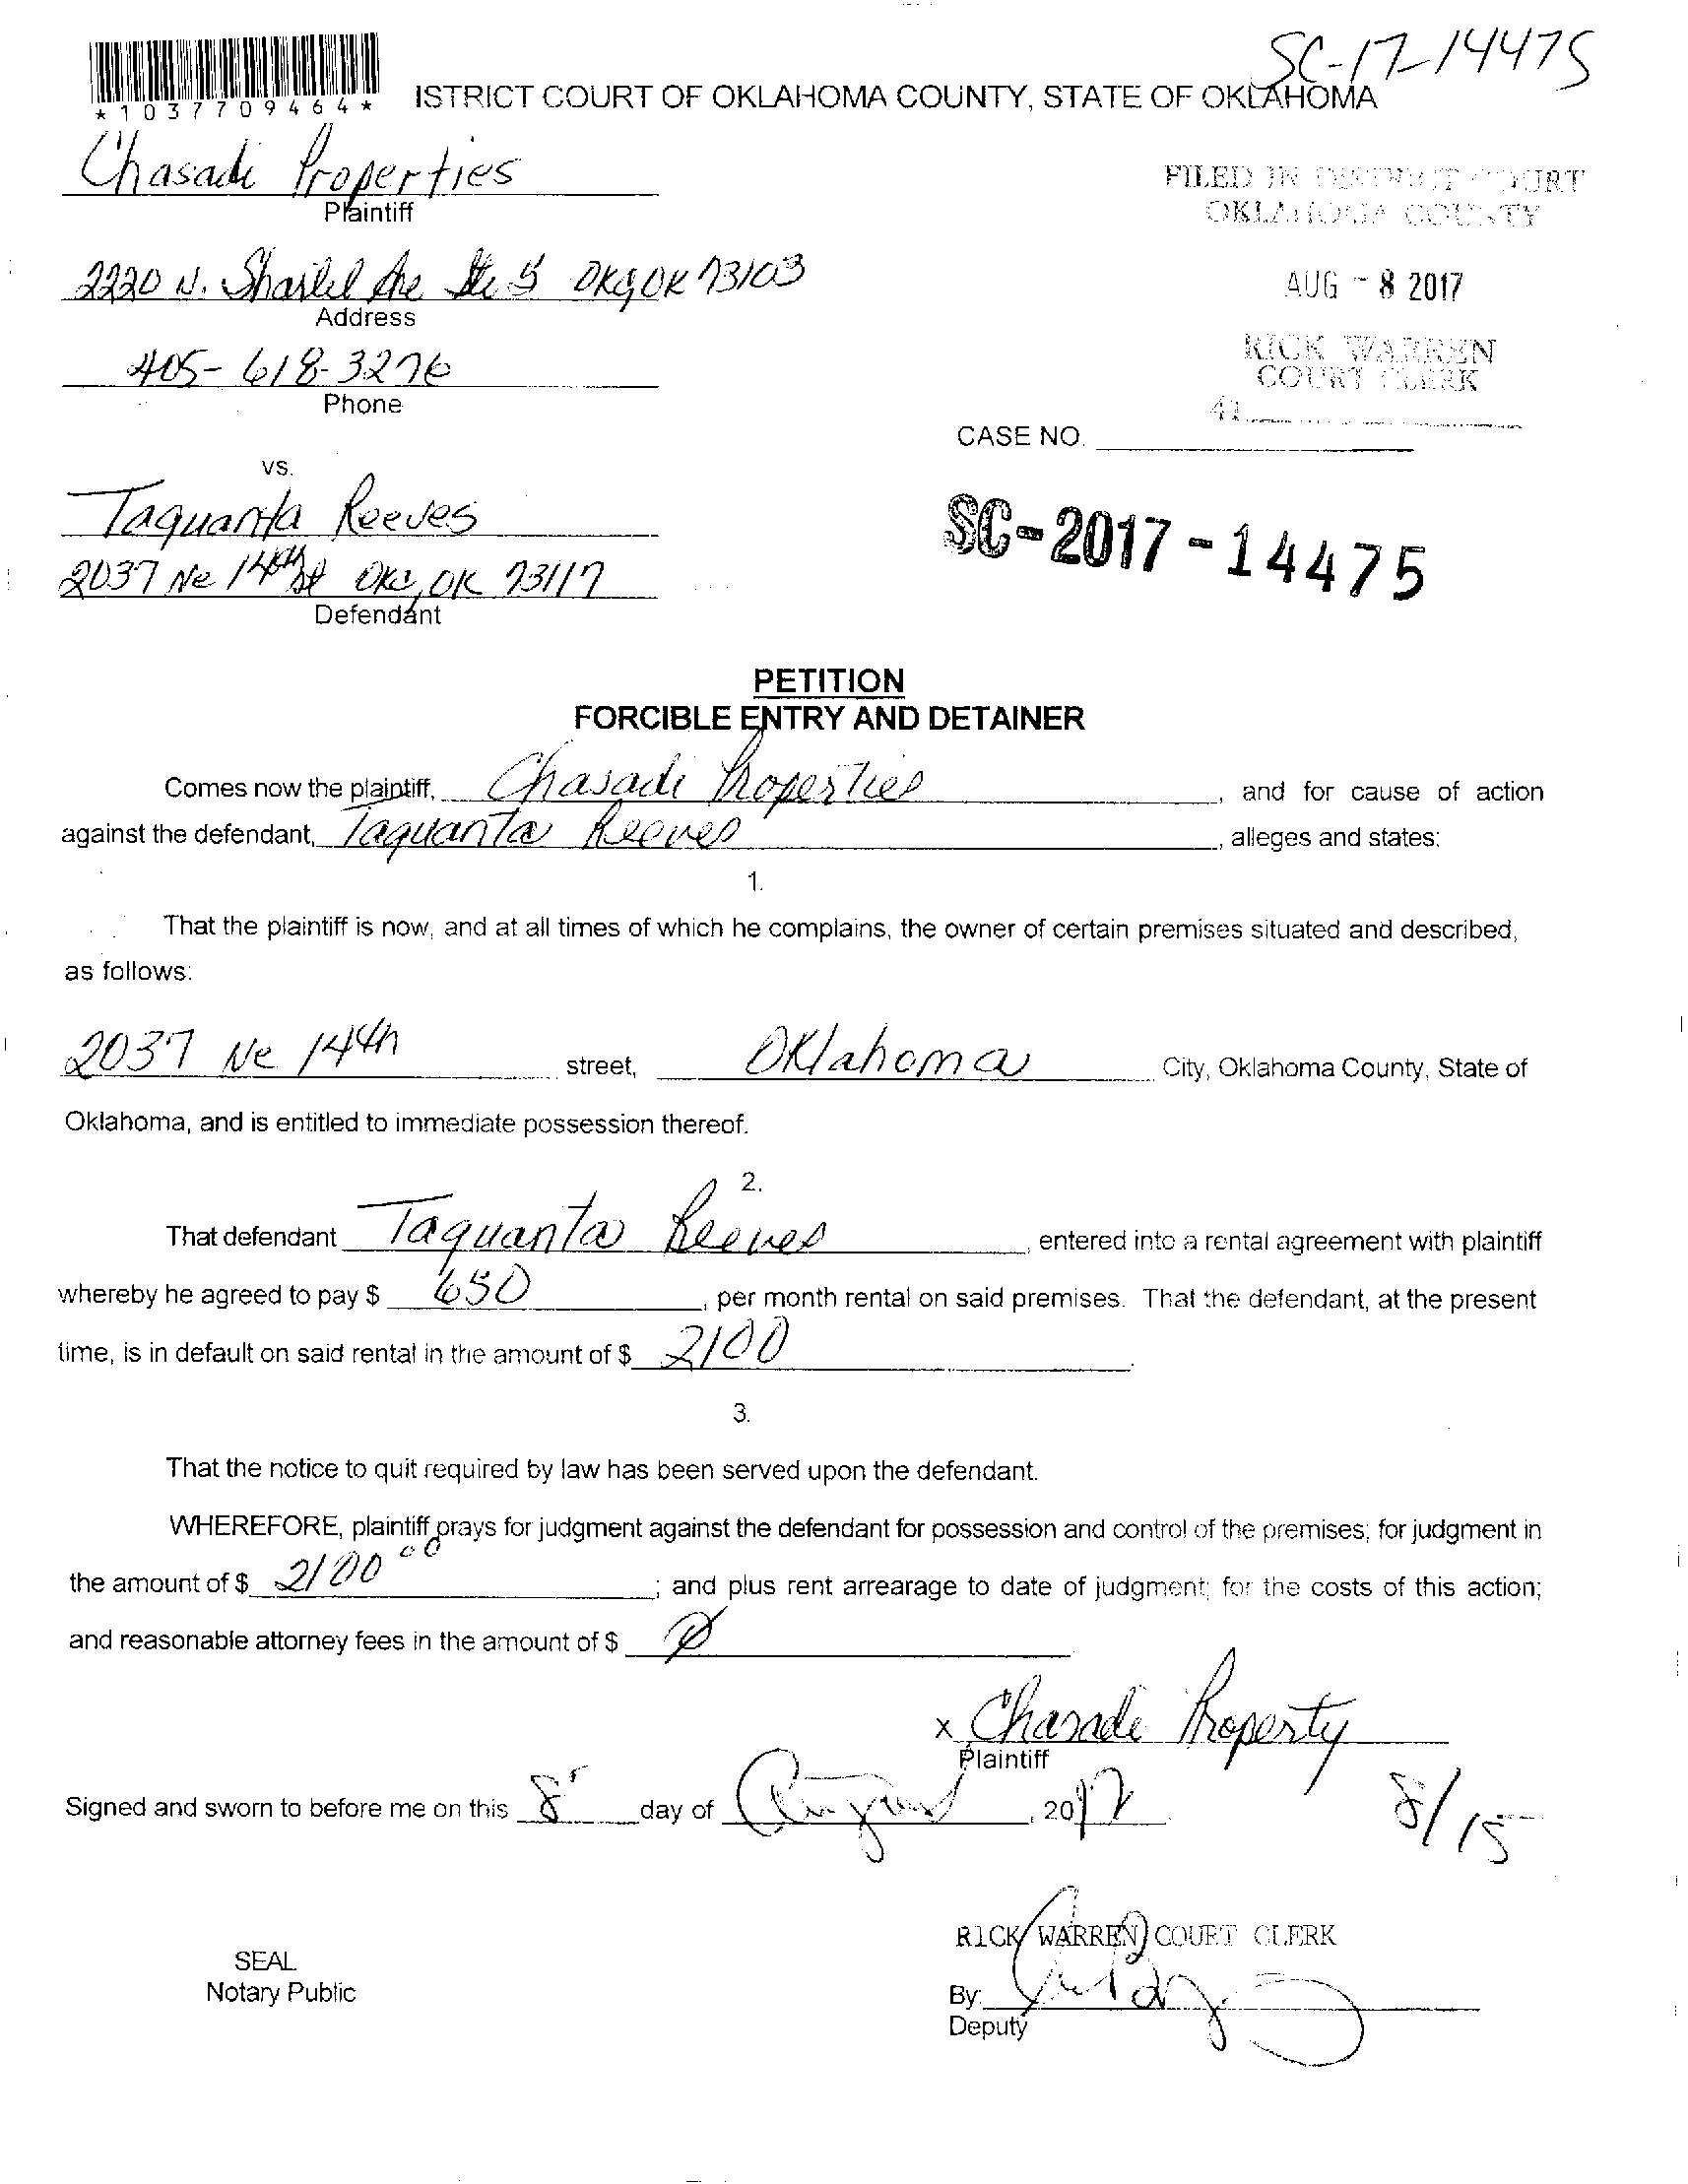 SC-17-14475
*1037709464*
ISTRICT COURT OF OKLAHOMA COUNTY, STATE OF OKLAHOMA
Chasadi Properties
Plaintiff
FILED IN DISTRICT COURT
OKLAHOMA COUNTY
2220 N. Ave Ste 5 OKC OK 73103
Address
AUG - 8 2017
405-618-3276
Phone
RICK WARREN
COURT CLERK
41
CASE NO.
vs.
Taquanta Reeves
SC-2017-14475
2037 Ne 14th St OKC, OK 73117
Defendant
PETITION
FORCIBLE ENTRY AND DETAINER
Comes now the plaintiff, Chasadi Properties, and for cause of action
against the defendant, Taquanta Reeves, alleges and states:
1.
That the plaintiff is now, and at all times of which he complains, the owner of certain premises situated and described,
as follows:
2037 Ne 14th street, Oklahoma City, Oklahoma County, State of
Oklahoma, and is entitled to immediate possession thereof.
2.
That defendant Taquanta Reeves, entered into a rental agreement with plaintiff
whereby he agreed to pay $ 650, per month rental on said premises. That the defendant, at the present
time, is in default on said rental in the amount of $ 2100.
3.
That the notice to quit required by law has been served upon the defendant.
WHEREFORE, plaintiff prays for judgment against the defendant for possession and control of the premises; for judgment in
the amount of $ 2100 00; and plus rent arrearage to date of judgment; for the costs of this action;
and reasonable attorney fees in the amount of $ Ø
x Chasadi Property
Plaintiff
Signed and sworn to before me on this 8 day of August, 2017
8/15
RICK WARREN COURT CLERK
SEAL
Notary Public
By:
Deputy